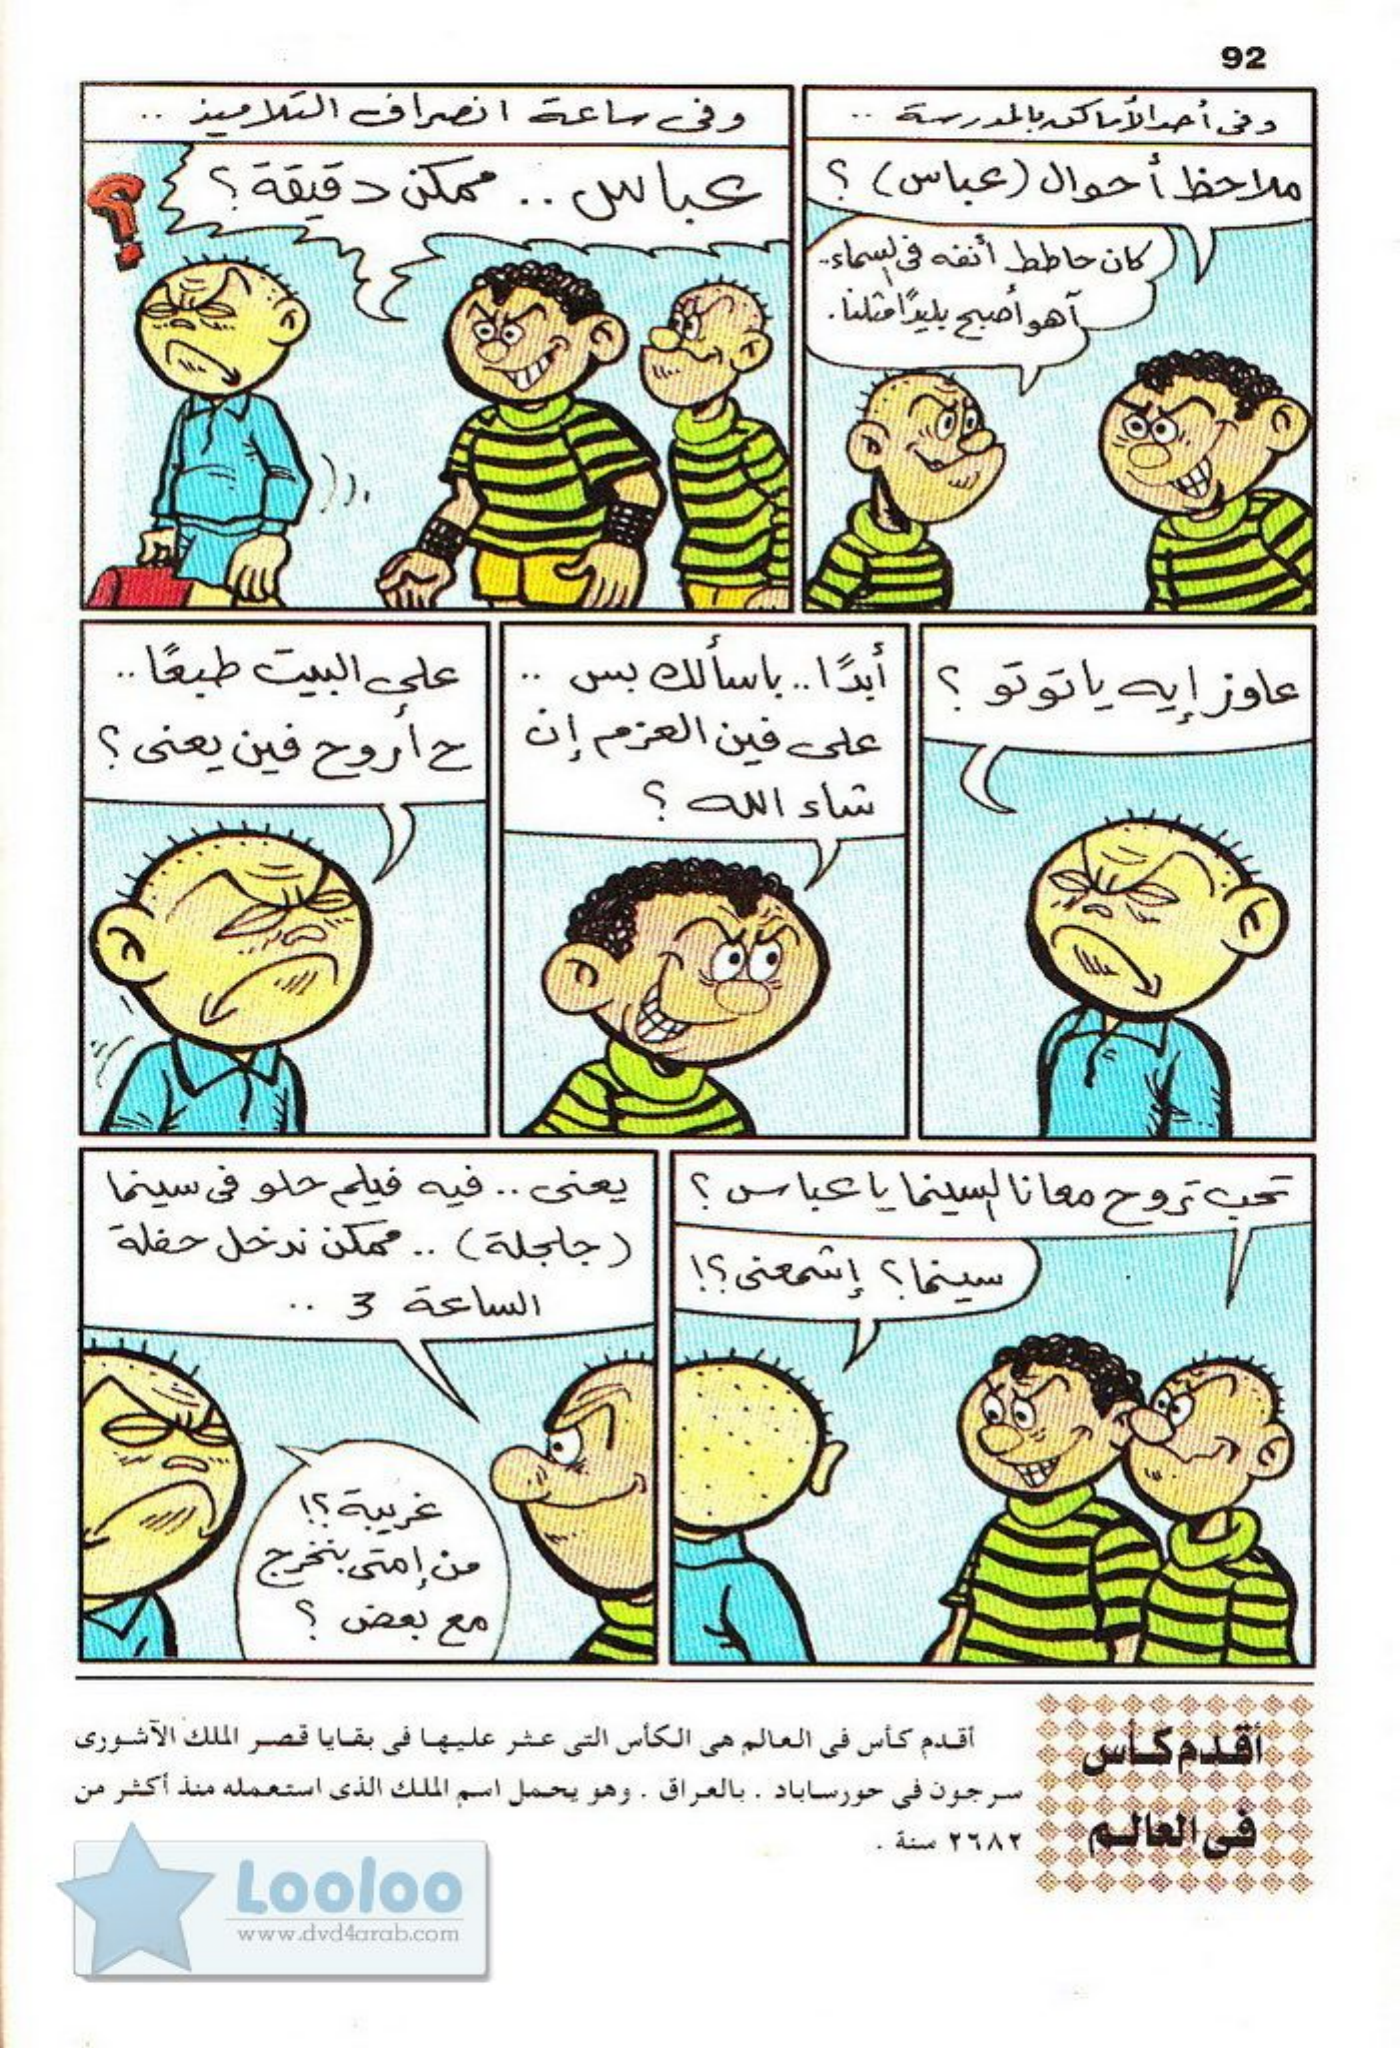 92
وفى أحد الأماكن بالمدرسة ..
ملاحظ أحوال (عباس) ؟
كان حاطط أنفه فى السماء..
آهو أصبح بليدًا مثلنا.
وفى ساعة انصراف التلاميذ ..
عباس .. ممكن دقيقة ؟
عاوز إيه يا توتو ؟
أبدًا.. باسألك بس ..
على فين العزم إن
شاء الله ؟
على البيت طبعًا..
ح أروح فين يعنى ؟
تحب تروح معانا السينما يا عباس ؟
سينما؟ إشمعنى؟!
يعنى .. فيه فيلم حلو فى سينما
(جلجلة) .. ممكن ندخل حفلة
الساعة 3 ..
غريبة؟!
من إمتى بنخرج
مع بعض ؟
أقدم كأس
فى العالم
أقدم كأس فى العالم هى الكأس التى عثر عليها فى بقايا قصر الملك الآشورى
سرجون فى حورساباد . بالعراق . وهو يحمل اسم الملك الذى استعمله منذ أكثر من
٢٦٨٢ سنة .
Looloo
www.dvd4arab.com